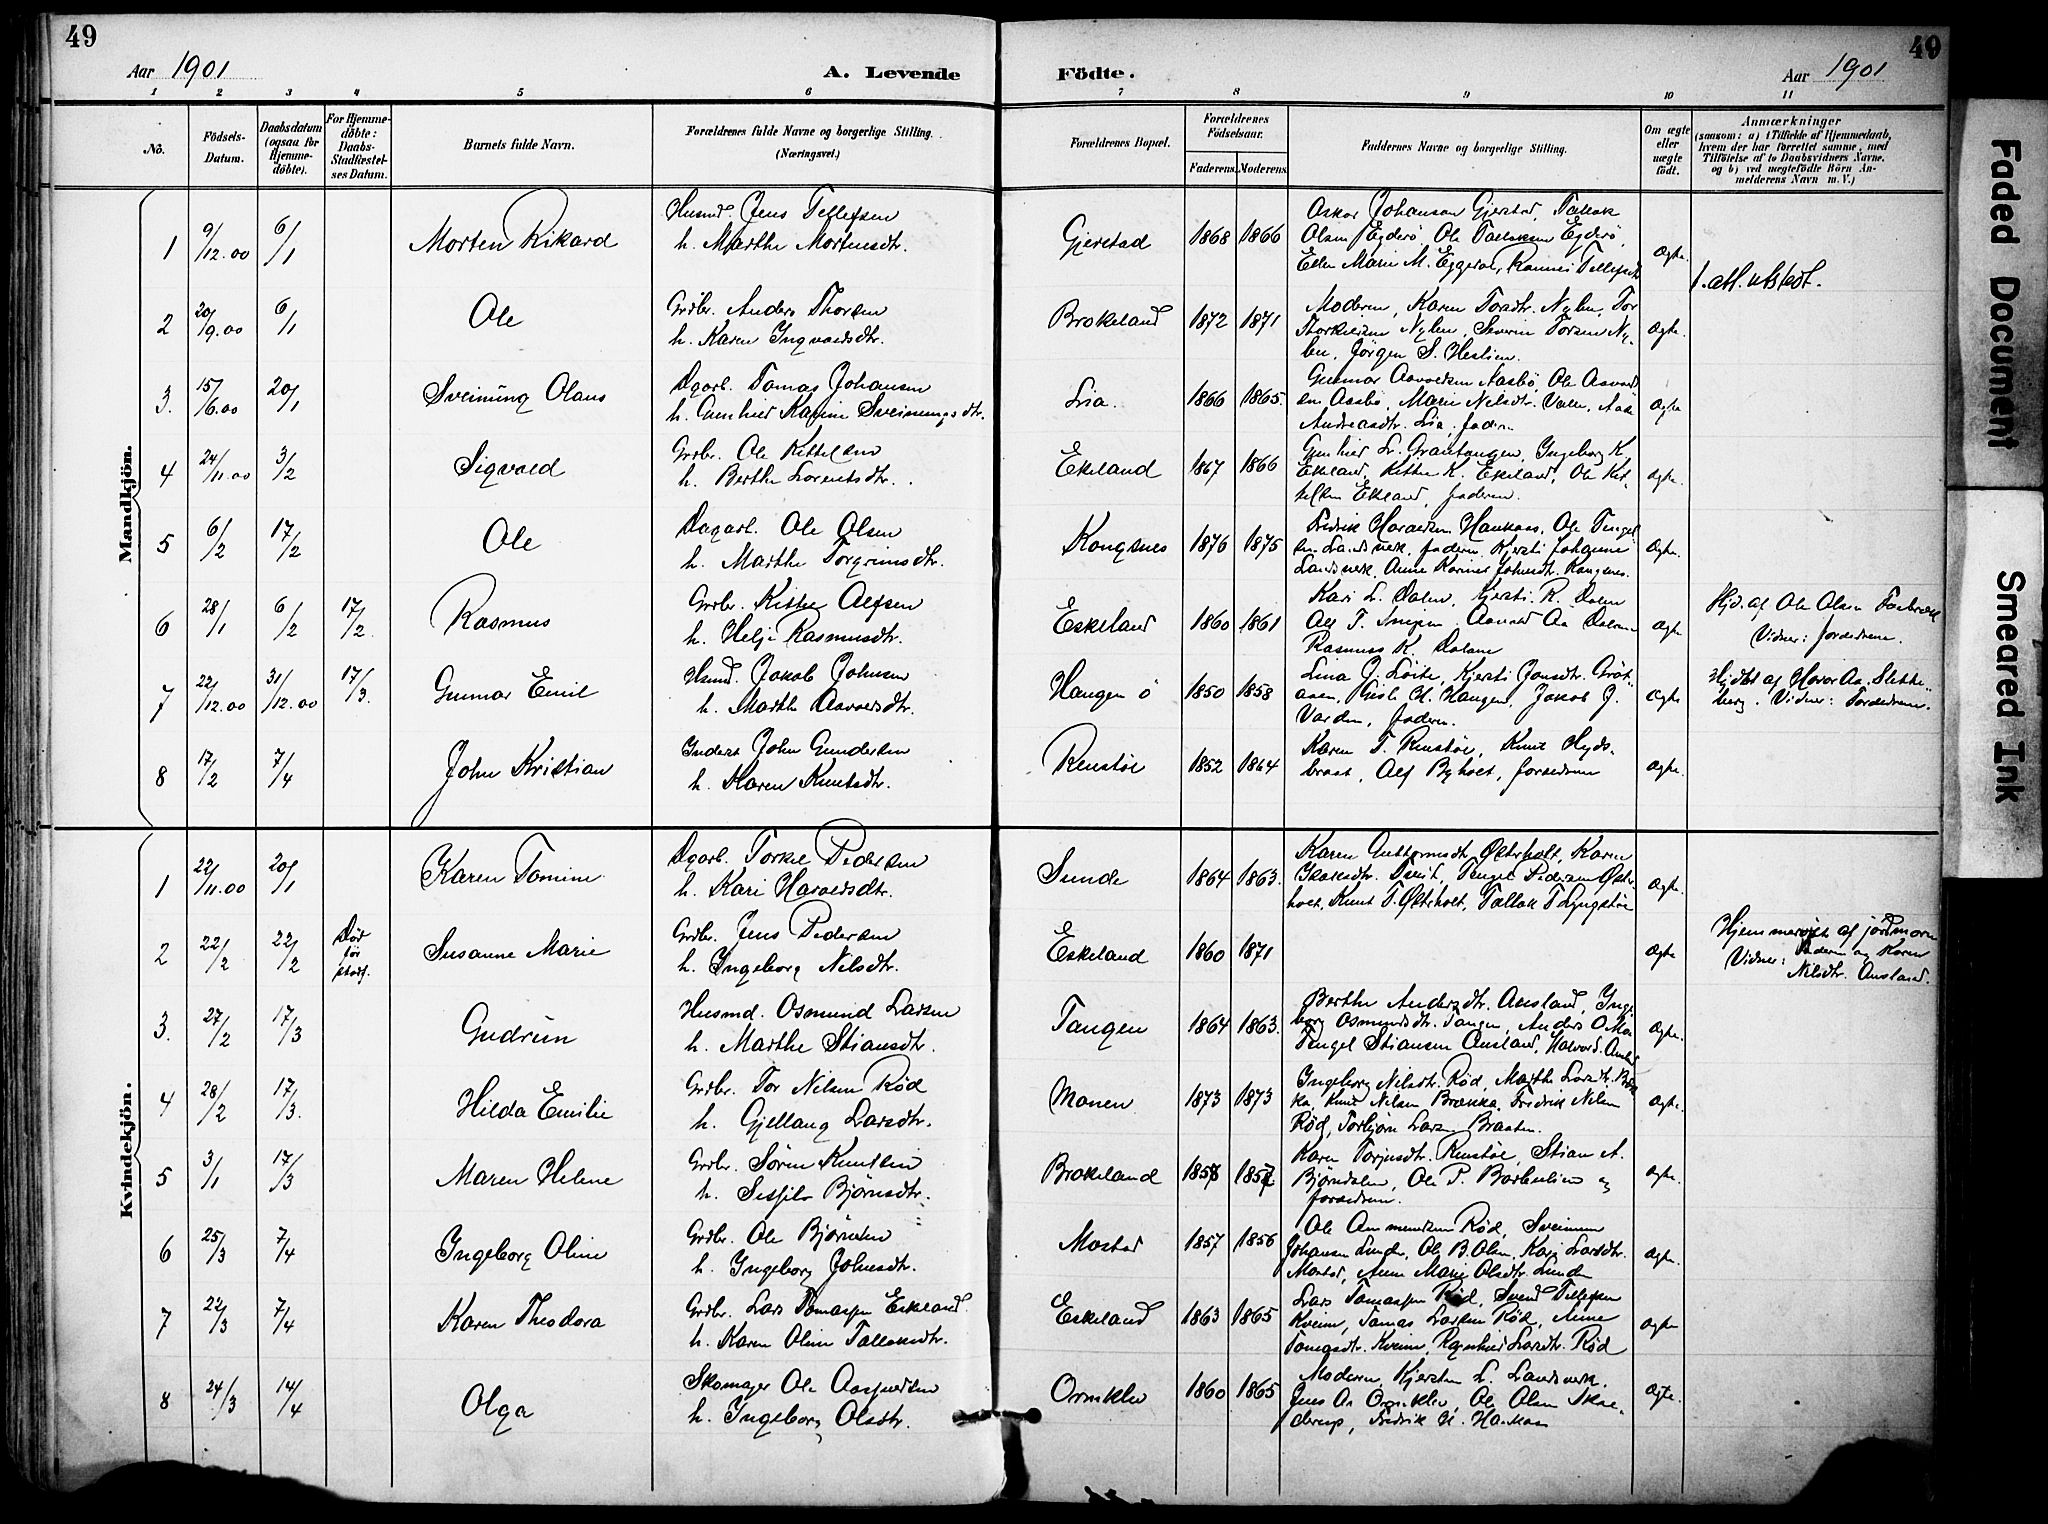 49
Aar 1901
A. Levende
Födte.
Aar 1901
49
1 2 3 4 5 6 7 8 9 10 11
No.
Födsels-Datum.
Daabsdatum (ogsaa for Hjemme-döbte).
For Hjemme-döbte: Daabs-Stadfæstel-ses Datum.
Barnets fulde Navn.
Forældrenes fulde Navne og borgerlige Stilling. (Næringsvei.)
Forældrenes Bopæl.
Forældrenes Födselsaar.
Faderens. Moderens.
Faddernes Navne og borgerlige Stilling.
Om ægte eller uægte födt.
Anmærkninger
(saasom: a) i Tilfælde af Hjemmedaab, hvem der har forrettet samme, med Tilföielse af to Daabsvidners Navne. og b) ved uægtefödte Börn An-melderens Navn m. V.)
Mandkjön.
1 9/12.00 6/1 Morten Rikard
Husmd. Jens Tellefsen
h. Marthe Mortensdtr.
Gjerstad 1868 1866
Oskar Johansen Gjerstad, Tallak
Olsen Egderö, Ole Tallaksen Egderö,
Ellen Marie M. Eggerö, Tellefsdtr
Ægte.
1. att. utstedt.
2 20/9.00 6/1 Ole
Grdbr. Anders Thorsen
h. Karen Ingvoldsdtr.
Brokeland 1872 1871
Moderen, Karen Torsdtr. Nylen, Tor
Thorkildsen Nylen, Severin Torsen Ny-
len, Jörgen S. Hestlien.
Ægte.
3. 15/6.00 20/1 Sveinung Olaus
Dgarb. Tomas Johansen
h. Gunhild Karine Sveinungsdtr.
Lia. 1866 1865.
Gunnar Aavoldsen Aasbö, Ole Aavold
sen Aasbö, Marie Nelsdtr. Valle, Aase
Andreasdtr. Lia, faderen
Ægte
4 24/11.00 3/2 Sigvald
Grdbr. Ole Kittelsen
h. Berthe Lorentsdtr.
Ekeland 1867 1866
Gunhild L. Grantangen, Ingeborg K.
Ekeland, Kittel K. Ekeland, Ole Kit-
telsen Ekeland, faderen.
Ægte.
5 6/2 17/2 Ole
Dagarb. Ole Olsen
h. Marthe Torgrimsdtr.
Kongsnes 1876 1875
Fredrik Haraldsen Haukaas, Ole Tengel
sen Landsverk, faderen, Kjersti Johanne
Landsverk, Anne Karine Johnsdtr. Kongsnes.
Ægte.
6 28/1 6/2 17/2. Rasmus
Grdbr. Kittel Alfsen
h. Helje Rasmusdtr.
Eskeland 1860 1861
Kari L. Dalen, Kjersti R. Dalen
Alf T. Aanold Aa Dalen
Rasmus K. Dalen
Ægte
Hjd. af Ole Olsen
Vidner: forældrene.
7 22/12.00 31/12.00 17/3. Gunnar Emil
Husmd. Jakob Johnsen
h. Marthe Aavoldsdtr.
Haugen ö 1850 1858
Lina J. Löite, Kjersti Jonsdtr. Gröt-
aaen, H. Haugen, Jakob J.
Varden, faderen.
Ægte
Hjdbt af Havor Aa. Slette-
berg. Vidner: Forældrene.
8 17/2 7/4 John Kristian
Inderst John Gundersen
h. Karen Knutsdtr.
Renstöe 1852 1864
Karen T. Renstöe, Knut Hyds-
braat, Alf Byholt, forældrene
Ægte.
Kvindekjön.
1 22/11.00 20/1 Karen Tomine
Dgarb. Torkel Pedersen
h. Kari Haraldsdtr.
Sunde 1864 1863.
Karen Guttormsdtr. Østerholt, Karen
Tengel Pedersen Øster-
holt, Knut T. Østerholt, Tallak T Lyngstöe
Ægte.
2 22/2 22/2 Död för stadf. Susanne Marie
Grdbr. Jens Pedersen
h. Ingeborg Nilsdtr.
Eskeland 1860 1871
Ægte
Hjemmedöbt af jordmoren
Vidner: Faderen og Karen
Nilsdtr. Ausland.
3. 27/2 17/3 Gudrun
Husmd. Osmund Larsen
h. Marthe Stiansdtr.
Tangen 1864 1863.
Berthe Andersdtr. Ausland, Inge-
borg Osmundsdtr. Tangen, Anders O.
Tengel Stiansen Ausland, Halvord
Ægte.
4 28/2 17/3. Hilda Emilie
Grdbr. Tor Nilsen Röd
h. Gjellaug Larsdtr.
Monen 1873 1873
Ingeborg Nilsdtr. Röd, Marthe Larsdtr.
Knut Nilsen Brænka, Fredrik Nilsen
Röd, Torbjörn Larsen Braaten.
Ægte.
5 3/1 17/3 Maren Helene
Grdbr. Sören Knutsen
h. Sissjelv Björnsdtr.
Brokeland 1858 1857
Karen Torjusdtr. Renstöe, Stian A.
Björndalen, Ole P. og
forældrene.
Ægte.
6 25/3 7/4 Ingeborg Oline
Grdbr. Ole Björnsen
h. Ingeborg Johnsdtr.
Mostad 1857 1856
Ole Ammundsen Röd, Sveinum
Johansen Lunde, Ole B. Olsen, Kari Larsdtr.
Mostad, Anne Marie Olsdtr. Lunden
Ægte.
7 22/3 7/4 Karen Theodora
Grdbr. Lars Tomassen Eskeland.
h. Karen Oline Tallaksdtr.
Eskeland 1863 1865
Lars Tomassen Röd, Svend Tellefsen
Kveim, Tomas Larsen Röd, Anne
Tomasdtr. Kveim, Ragnhild Larsdtr. Röd
Ægte
8 24/3 14/4 Olga
Skomager Ole Aasulvsen
h. Ingeborg Olsdtr.
Ormklev 1860 1865
Moderen, Kjersten L. Landsverk,
Jens A. Ormklev, Ole Olsen Skae-
derup, Fredrik H. Haukaas
Ægte.
Faded Document
Smeared Ink